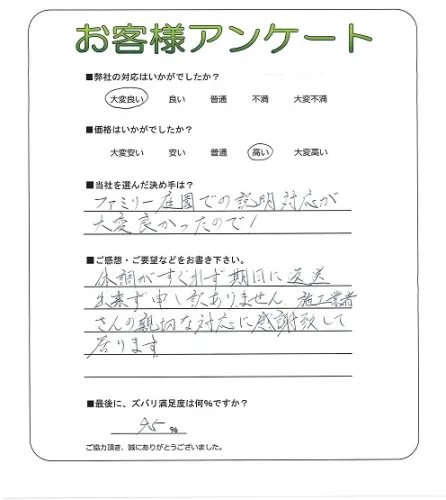 お客様アンケート
■弊社の対応はいかがでしたか?
大変良い 良い 普通 不満 大変不満
■価格はいかがでしたか?
大変安い 安い 普通 高い 大変高い
■当社を選んだ決め手は?
ファミリー庭園での説明対応が
大変良かったので!
■ご感想・ご要望などをお書き下さい。
体調がすぐれず期日に返送
出来ず申し訳ありません 施工業者
さんの親切な対応に感謝致して
居ります
■最後に、ズバリ満足度は何%ですか?
95 %
ご協力頂き、誠にありがとうございました。